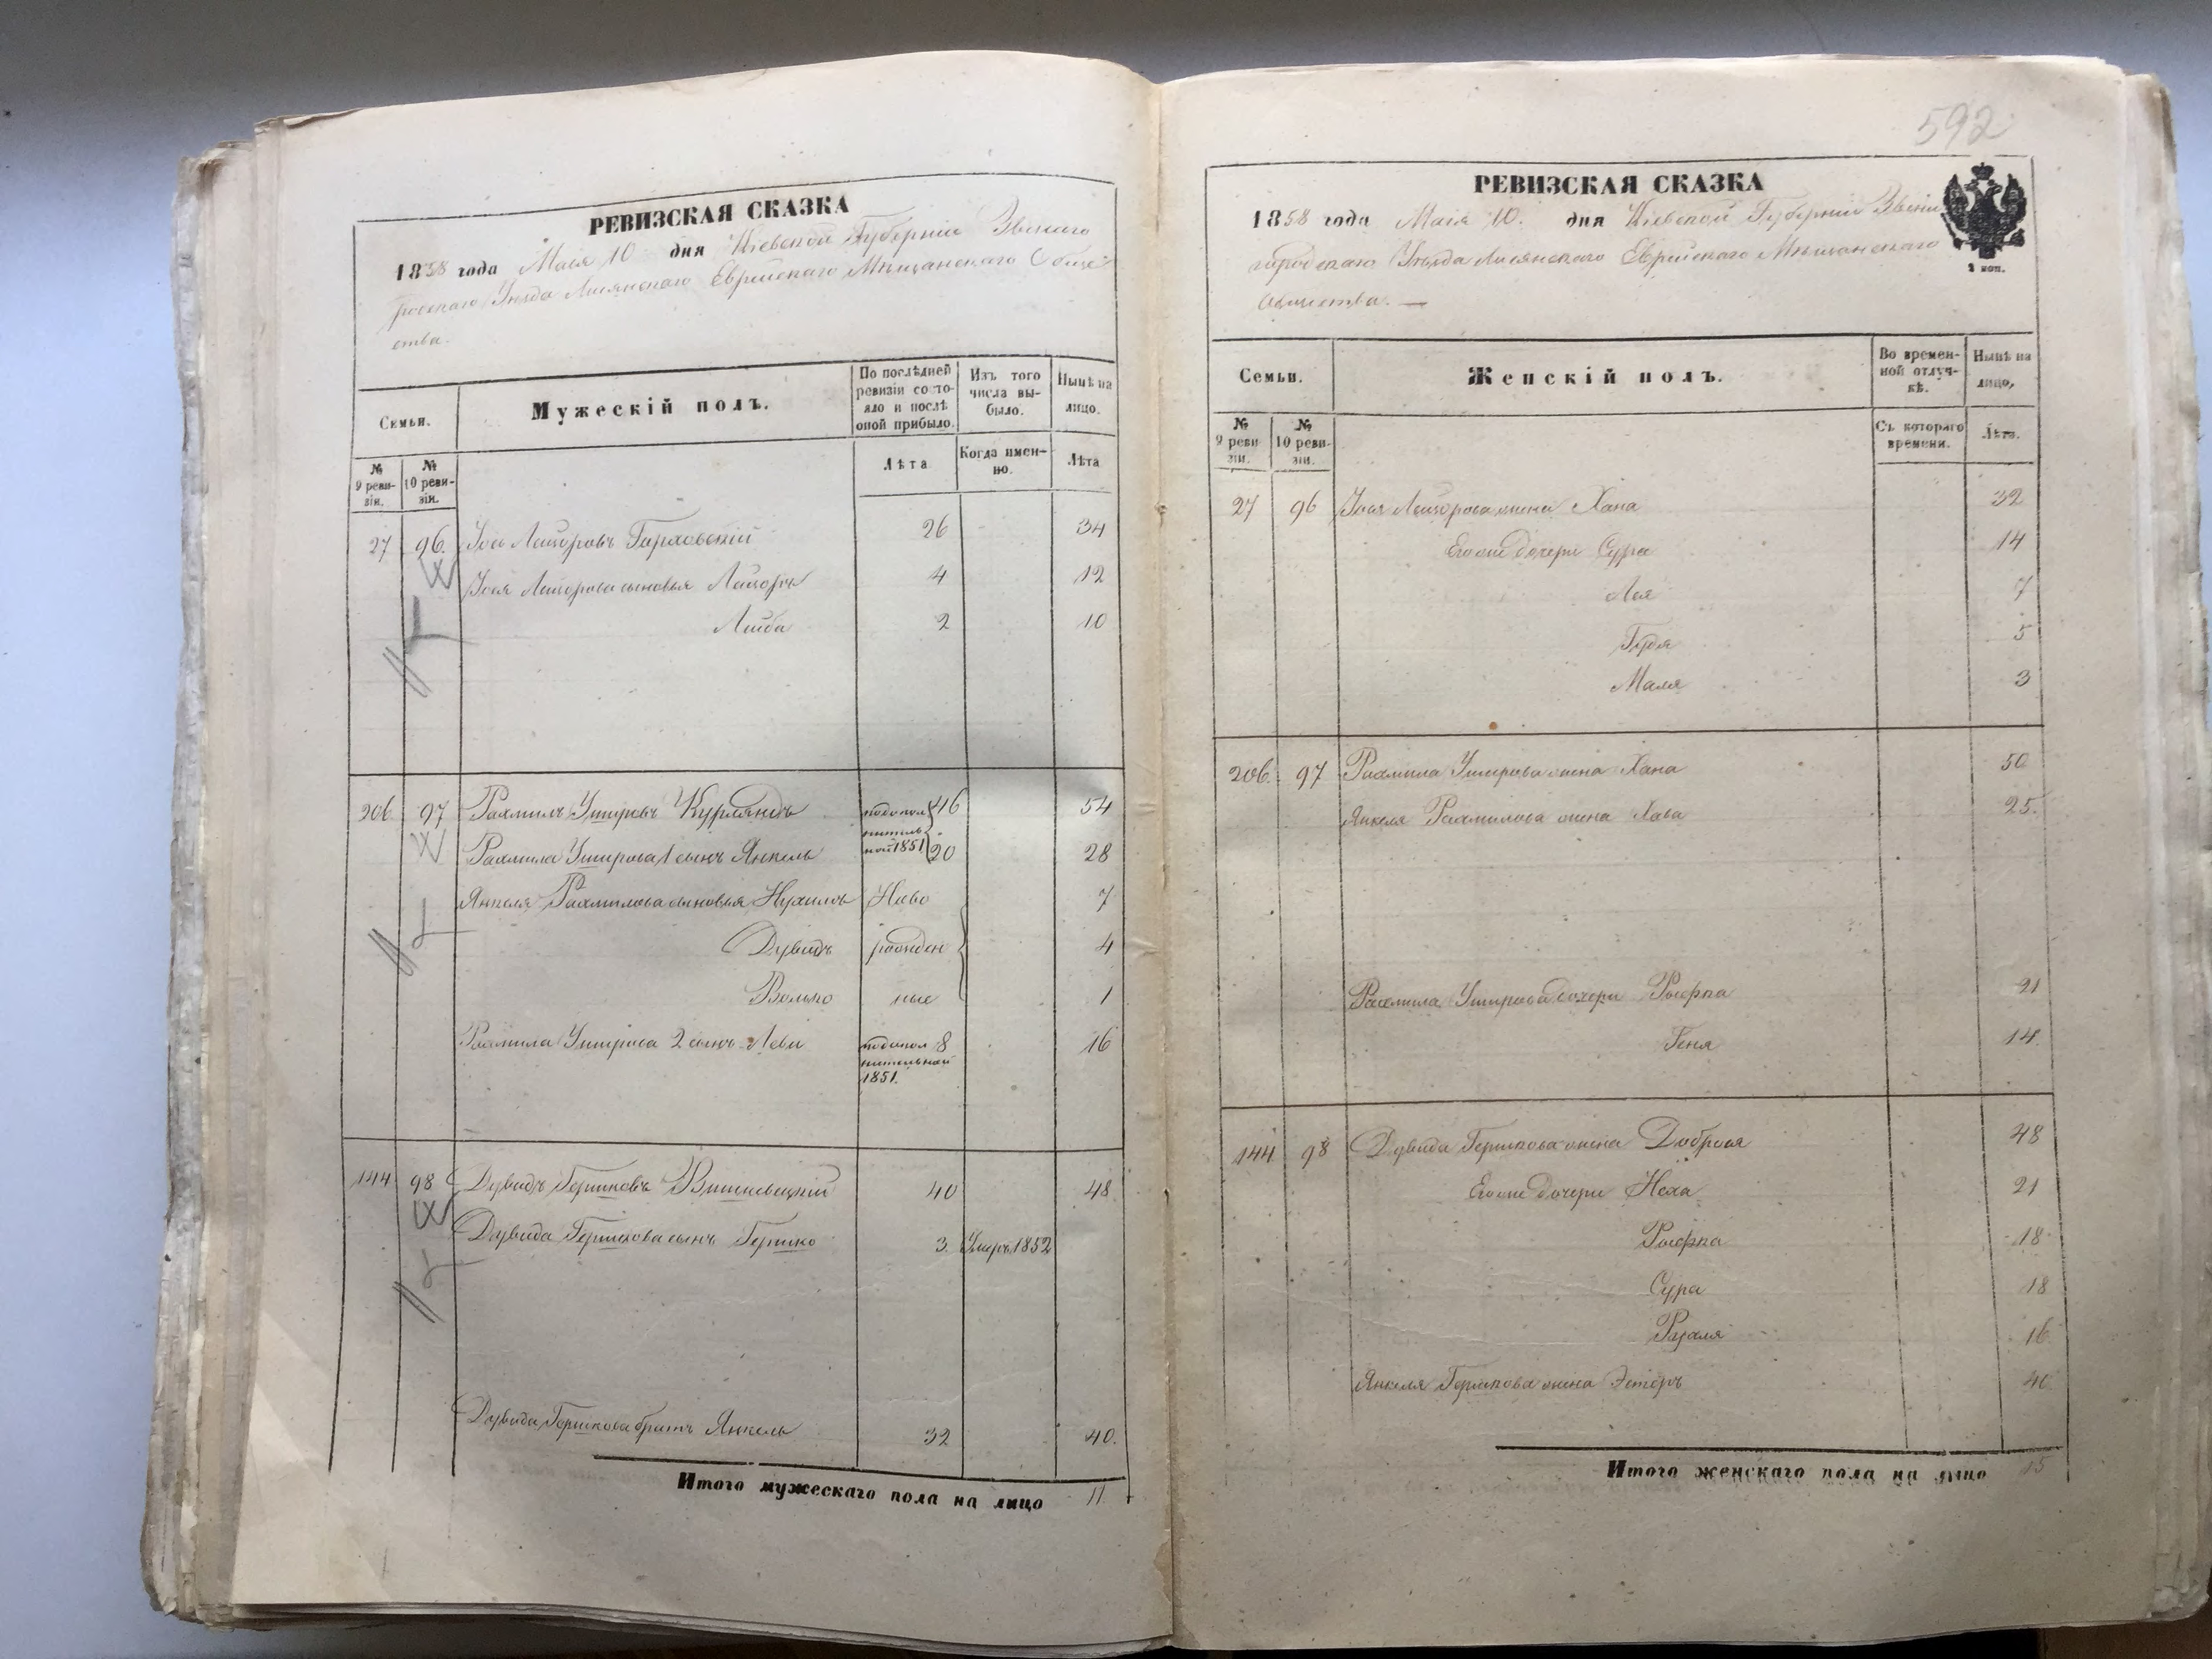 РЕВИЗСКАЯ СКАЗКА
1858 года Маія 10 дня Кіевской Губерніи Звениго
родскаго Уѣзда Лисянскаго Еврейскаго Мѣщанскаго Обще-
ства.
Семьи.
Мужескій полъ.
По послѣдней ревизіи состояло и послѣ оной прибыло.
Изъ того числа выбыло.
Нынѣ на лицо.
№ 9 реви-зіи.
№ 10 реви-зіи.
Лѣта
Когда имен-но.
Лѣта
27 96. Іось Лейзоровъ Гарховскій 26 34
Іося Лейзорова сыновья Лейзоръ 4 12
Лейба 2 10
206. 97 Рахмиль Ушеровъ Курляндъ подополнительной 1851 46 54
Рахмиля Ушерова 1 сынъ Янкель 20 28
Янкеля Рахмилова сыновья Нухимъ Ново 7
Дувидъ рожден 4
Волько ные 1
Рахмиля Ушерова 2 сынъ Леви подополнительной 1851. 8 16
144 98 Дувидъ Гершковъ Вишневецкій 40 48
Дувида Гершкова сынъ Гершко 3 Умеръ 1852
Дувида Гершкова братъ Янкель 32 40.
Итого мужескаго пола на лицо 11
592
РЕВИЗСКАЯ СКАЗКА
1858 года Маія 10. дня Кіевской Губерніи Звени
городскаго Уѣзда Лисянскаго Еврейскаго Мѣщанскаго
Общества. —
2 коп.
Семьи.
Женскій полъ.
Во времен-ной отлуч-кѣ.
Нынѣ на лицо,
№ 9 реви-зіи.
№ 10 реви-зіи.
Съ котораго времени.
Лѣта.
27 96 Іося Лейзорова жена Хана 32
Его же дочери Сура 14
Лея 7
Гудя 5
Маля 3
206. 97 Рахмиля Ушерова жена Хана 50
Янкеля Рахмилова жена Хава 25.
Рахмиля Ушерова дочери Рыфка 21
Геня 14
144 98 Дувида Гершкова жена Доброся 48
Его же дочери Неха 21
Рыфка 18
Сура 18
Рузаля 16
Янкеля Гершкова жена Эстеръ 40
Итого женскаго пола на лицо 15